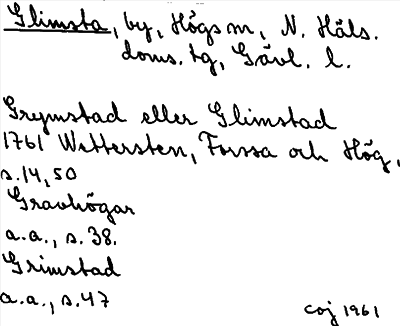 Glimsta, by, Högs sn, N. Häls.
doms. tg, Gävl. l.
Grymstad eller Glimstad
1761 Wettersten, Forssa och Hög,
s. 14, 50
Gravhögar
a.a., s. 38.
Grimstad
a.a., s. 47
coj 1961